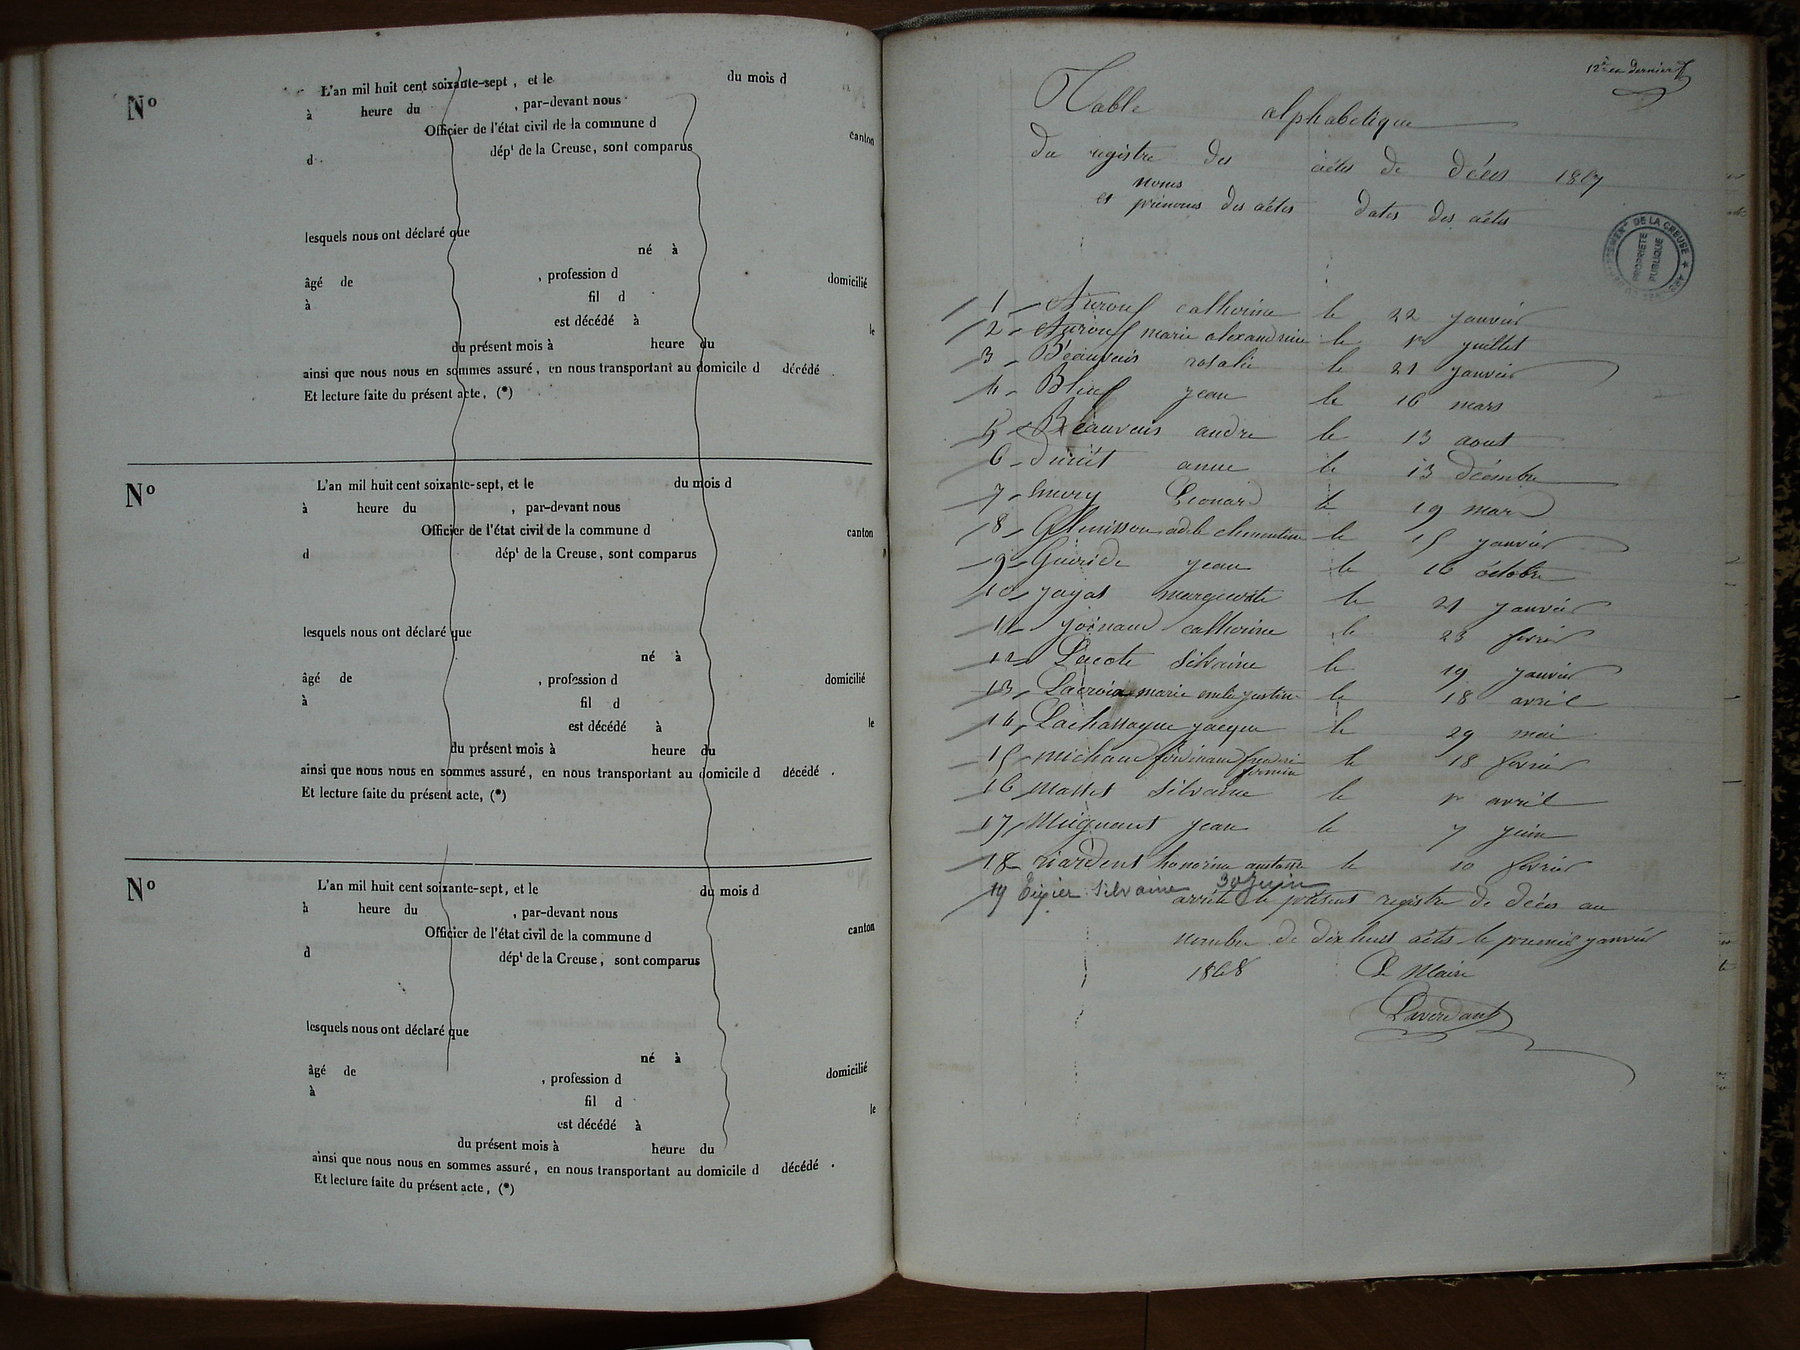 Nº
L'an mil huit cent soixante-sept, et le du mois d
à heure du , par-devant nous
Officier de l'état civil de la commune d canton
d dépt de la Creuse, sont comparus
lesquels nous ont déclaré que
né à
âgé de , profession d domicilié
à fil d
est décédé à le
du présent mois à heure du
ainsi que nous nous en sommes assuré, en nous transportant au domicile d décédé .
Et lecture faite du présent acte. (*)
Nº
L'an mil huit cent soixante-sept, et le du mois d
à heure du , par-devant nous
Officier de l'état civil de la commune d canton
d dépt de la Creuse, sont comparus
lesquels nous ont déclaré que
né à
âgé de , profession d domicilié
à fil d
est décédé à le
du présent mois à heure du
ainsi que nous nous en sommes assuré, en nous transportant au domicile d décédé .
Et lecture faite du présent acte, (*)
Nº
L'an mil huit cent soixante-sept, et le du mois d
à heure du , par-devant nous
Officier de l'état civil de la commune d canton
d dépt de la Creuse, sont comparus
lesquels nous ont déclaré que
né à
âgé de , profession d domicilié
à fil d
est décédé à le
du présent mois à heure du
ainsi que nous nous en sommes assuré, en nous transportant au domicile d décédé .
Et lecture faite du présent acte, (*)
12e et dernier
Table alphabetique
du registre des actes de décès 1867
noms
et prénoms des actes dates des actes
DE LA CREUSE
PROPRIETE
PUBLIQUE
1 catherine le 22 janvier
2 marie alexandrine le 1er juillet
3 Beauvais rosalie le 21 janvier
4 jean le 16 mars
5 Beauvais andre le 13 aout
6 anne le 13 décembre
7 Leonard le 19 mars
8 adele clementine le 15 janvier
9 Guéride jean le 16 octobre
10 jayat marguerite le 21 janvier
11 joinaud catherine le 23 fevrier
12 Lacote silvaine le 19 janvier
13 Lacroix marie justine le 18 avril
14 Lachassagne jacque le 29 mai
15 michaud ferdinand firmin le 18 fevrier
16 silvaine le 1er avril
17 Mignant jean le 7 juin
18 honorine le 10 fevrier
19 Tixier Silvaine 30 Juin
arrété le présent registre de décès au
nombre de dix huit actes le premier janvier
1868 Le Maire
Laverdant